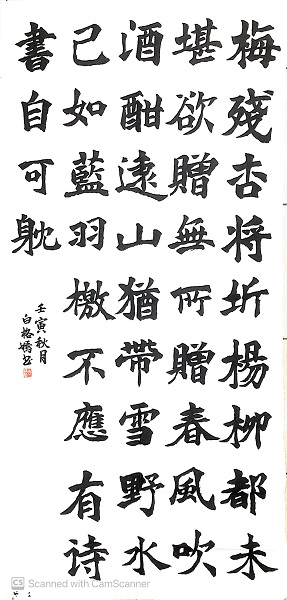 梅殘杏将圻楊柳都未
堪欲贈無所贈春風吹
酒酣遠山猶帶雪野水
己如藍羽檄不應有詩
書自可躭
壬寅秋月
CS Scanned with CamScanner